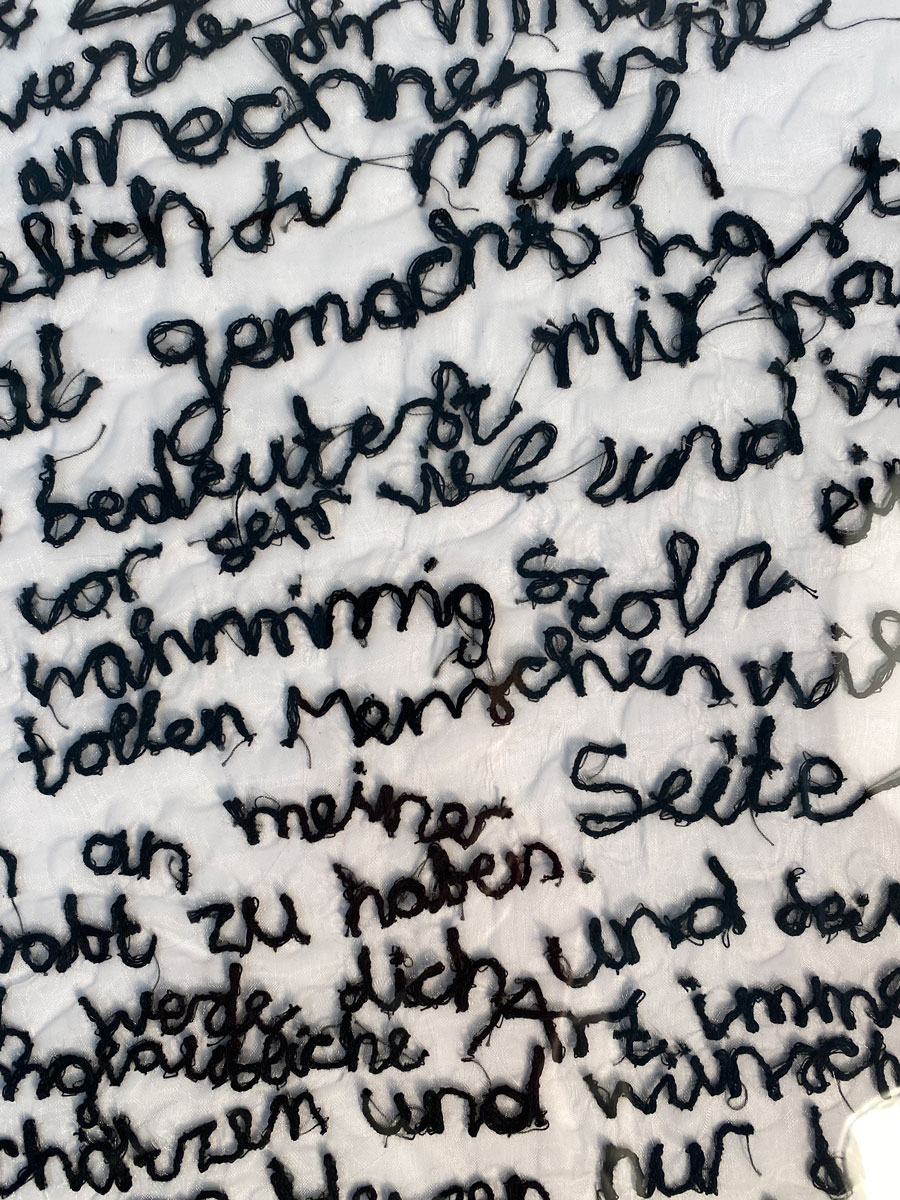 werde dir immer
anrechnen wie
elich du mich
al gemacht hast
bedeutest mir
vor sehr viel und ic
wahnsinnig stolz ein
tollen Menschen wie
an meiner Seite
habt zu haben.
werde dich und dein
nglaubliche Art imme
chätzen und wünsch
Herzen nur